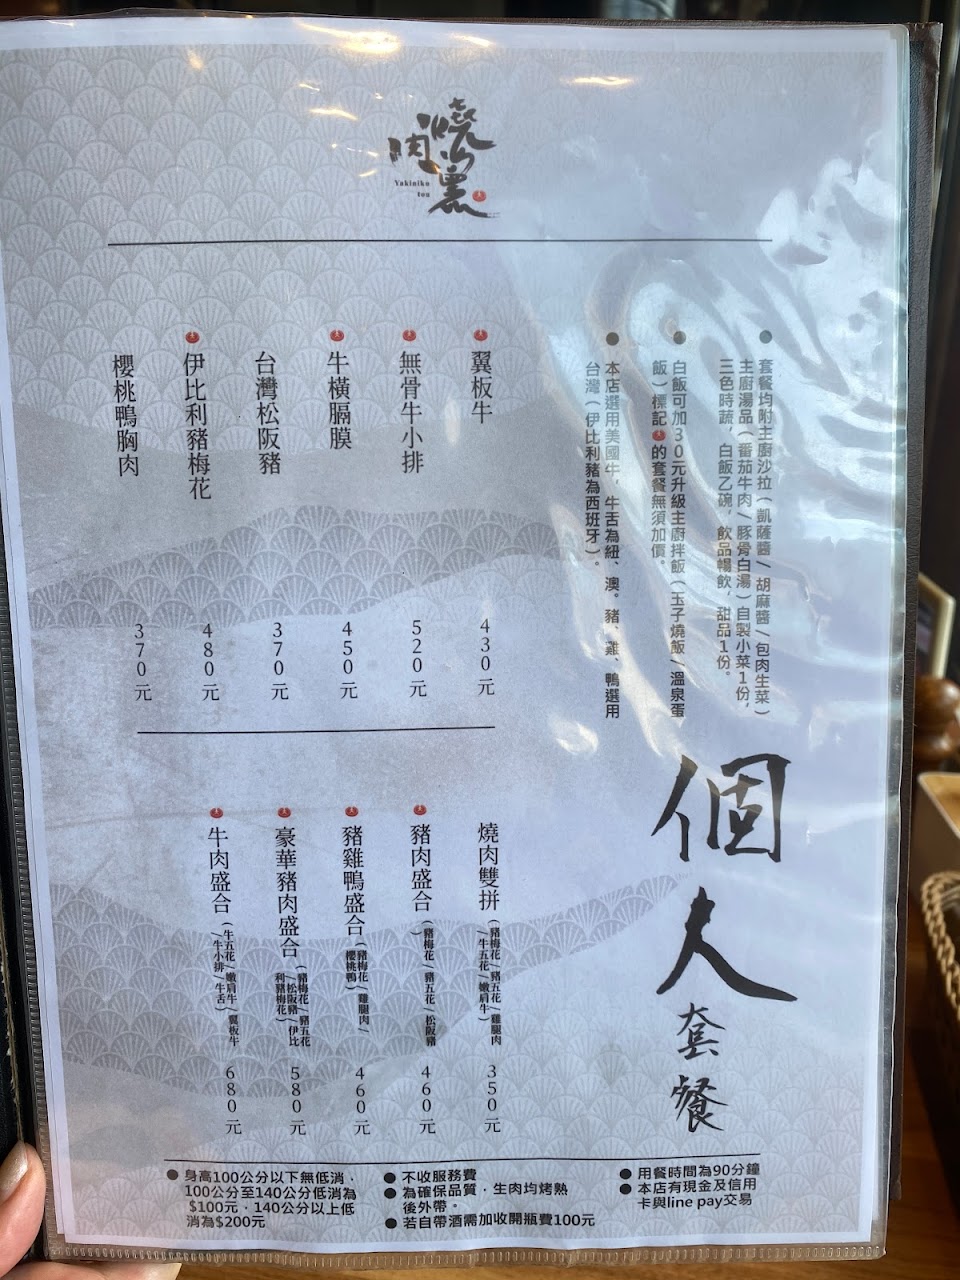 燒肉震
Yakiniku
tou
個人套餐
套餐均附主廚沙拉（凱薩醬/胡麻醬/包肉生菜）
主廚湯品（番茄牛肉/豚骨白湯）自製小菜1份，
三色時蔬，白飯乙碗，飲品暢飲，甜品1份。
白飯可加30元升級主廚拌飯（玉子燒飯/溫泉蛋
飯）標記的套餐無須加價。
本店選用美國牛，牛舌為紐、澳。豬、雞、鴨選用
台灣（伊比利豬為西班牙）。
翼板牛 430元
無骨牛小排 520元
牛橫膈膜 450元
台灣松阪豬 370元
伊比利豬梅花 480元
櫻桃鴨胸肉 370元
燒肉雙拼（豬梅花/豬五花/雞腿肉
/牛五花/嫩肩牛） 350元
豬肉盛合（豬梅花/豬五花/松阪豬
） 460元
豬雞鴨盛合（豬梅花/雞腿肉/
櫻桃鴨） 460元
豪華豬肉盛合（豬梅花/豬五花
/松阪豬/伊比
利豬梅花） 580元
牛肉盛合（牛五花/嫩肩牛/翼板牛
/牛小排/牛舌） 680元
身高100公分以下無低消，
100公分至140公分低消為
$100元，140公分以上低
消為$200元
不收服務費
為確保品質，生肉均烤熟
後外帶。
若自帶酒需加收開瓶費100元
用餐時間為90分鐘
本店有現金及信用
卡與line pay交易